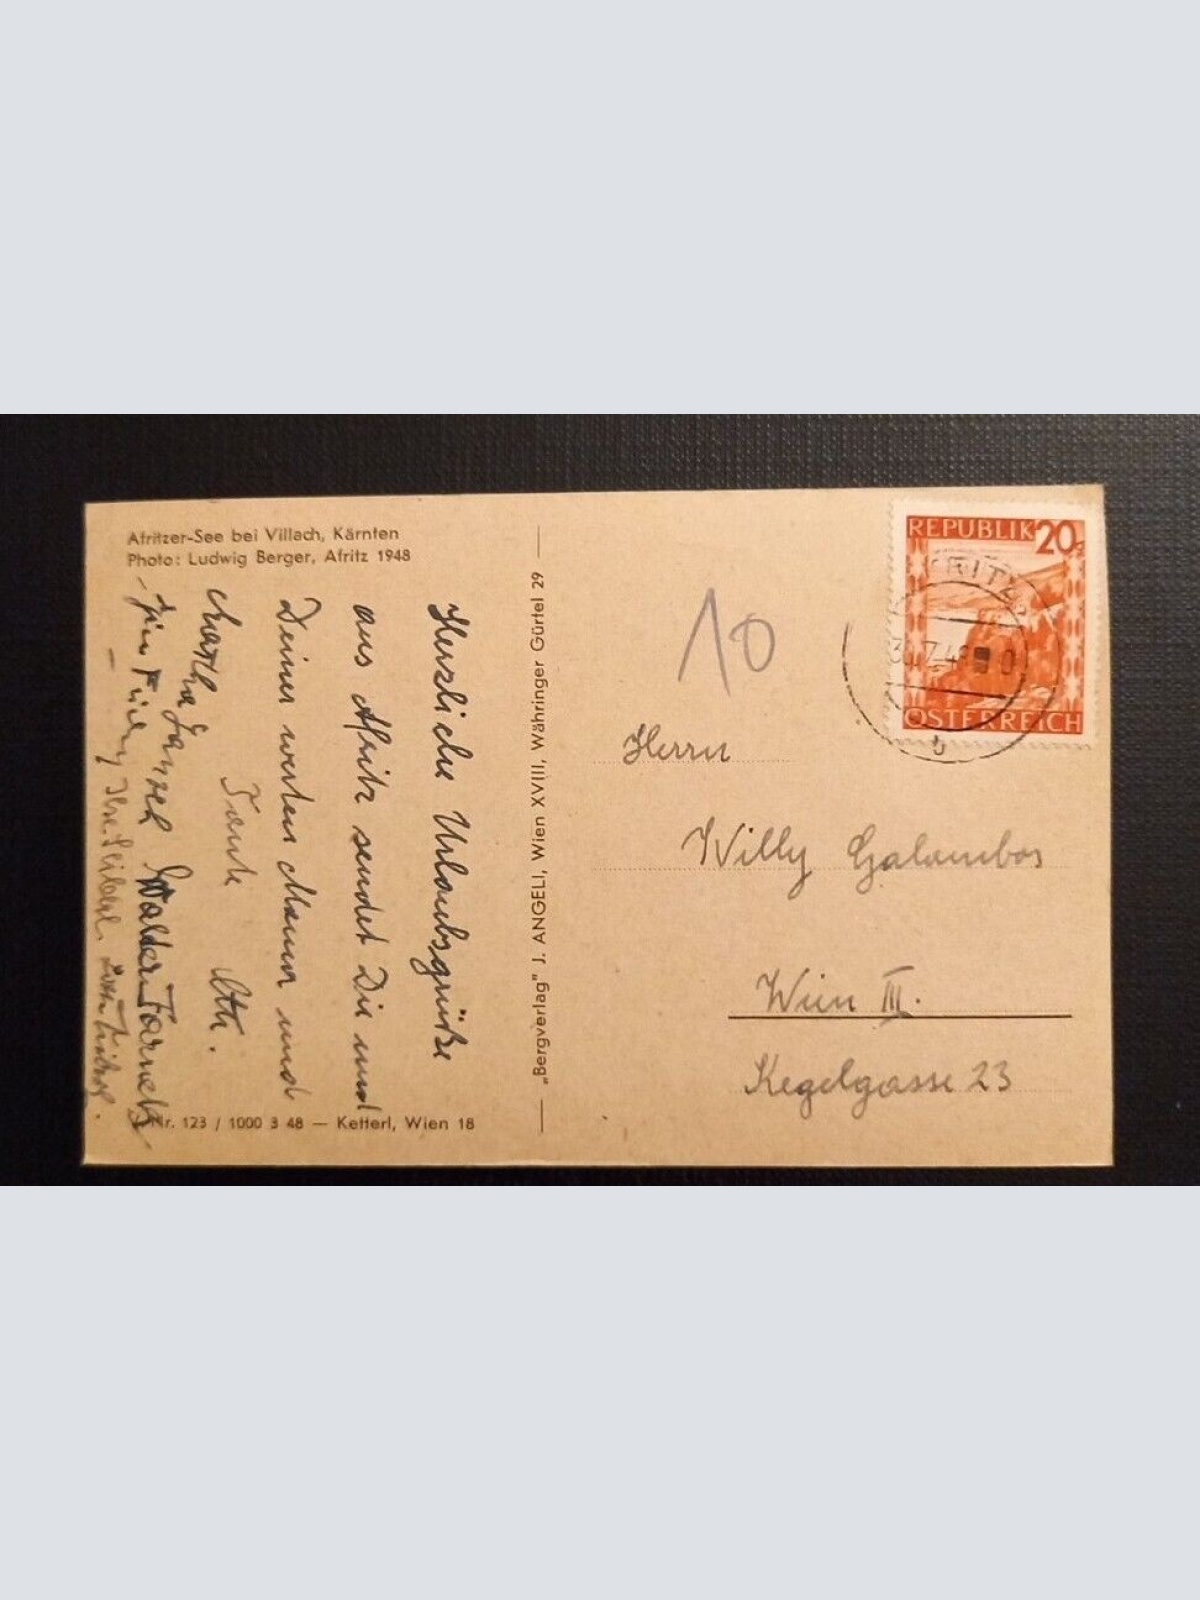 Afritzer-See bei Villach, Kärnten
Photo: Ludwig Berger, Afritz 1948
Herzliche Urlaubsgrüße
aus Afritz sendet Dir und
Deiner werten Mama und
Tante
Walter
Nr. 123 / 1000 3 48 — Ketterl, Wien 18
„Bergverlag" J. ANGELI, Wien XVIII, Währinger Gürtel 29
10
REPUBLIK 20g
ÖSTERREICH
b
Herrn
Willy Galambos
Wien III.
Kegelgasse 23